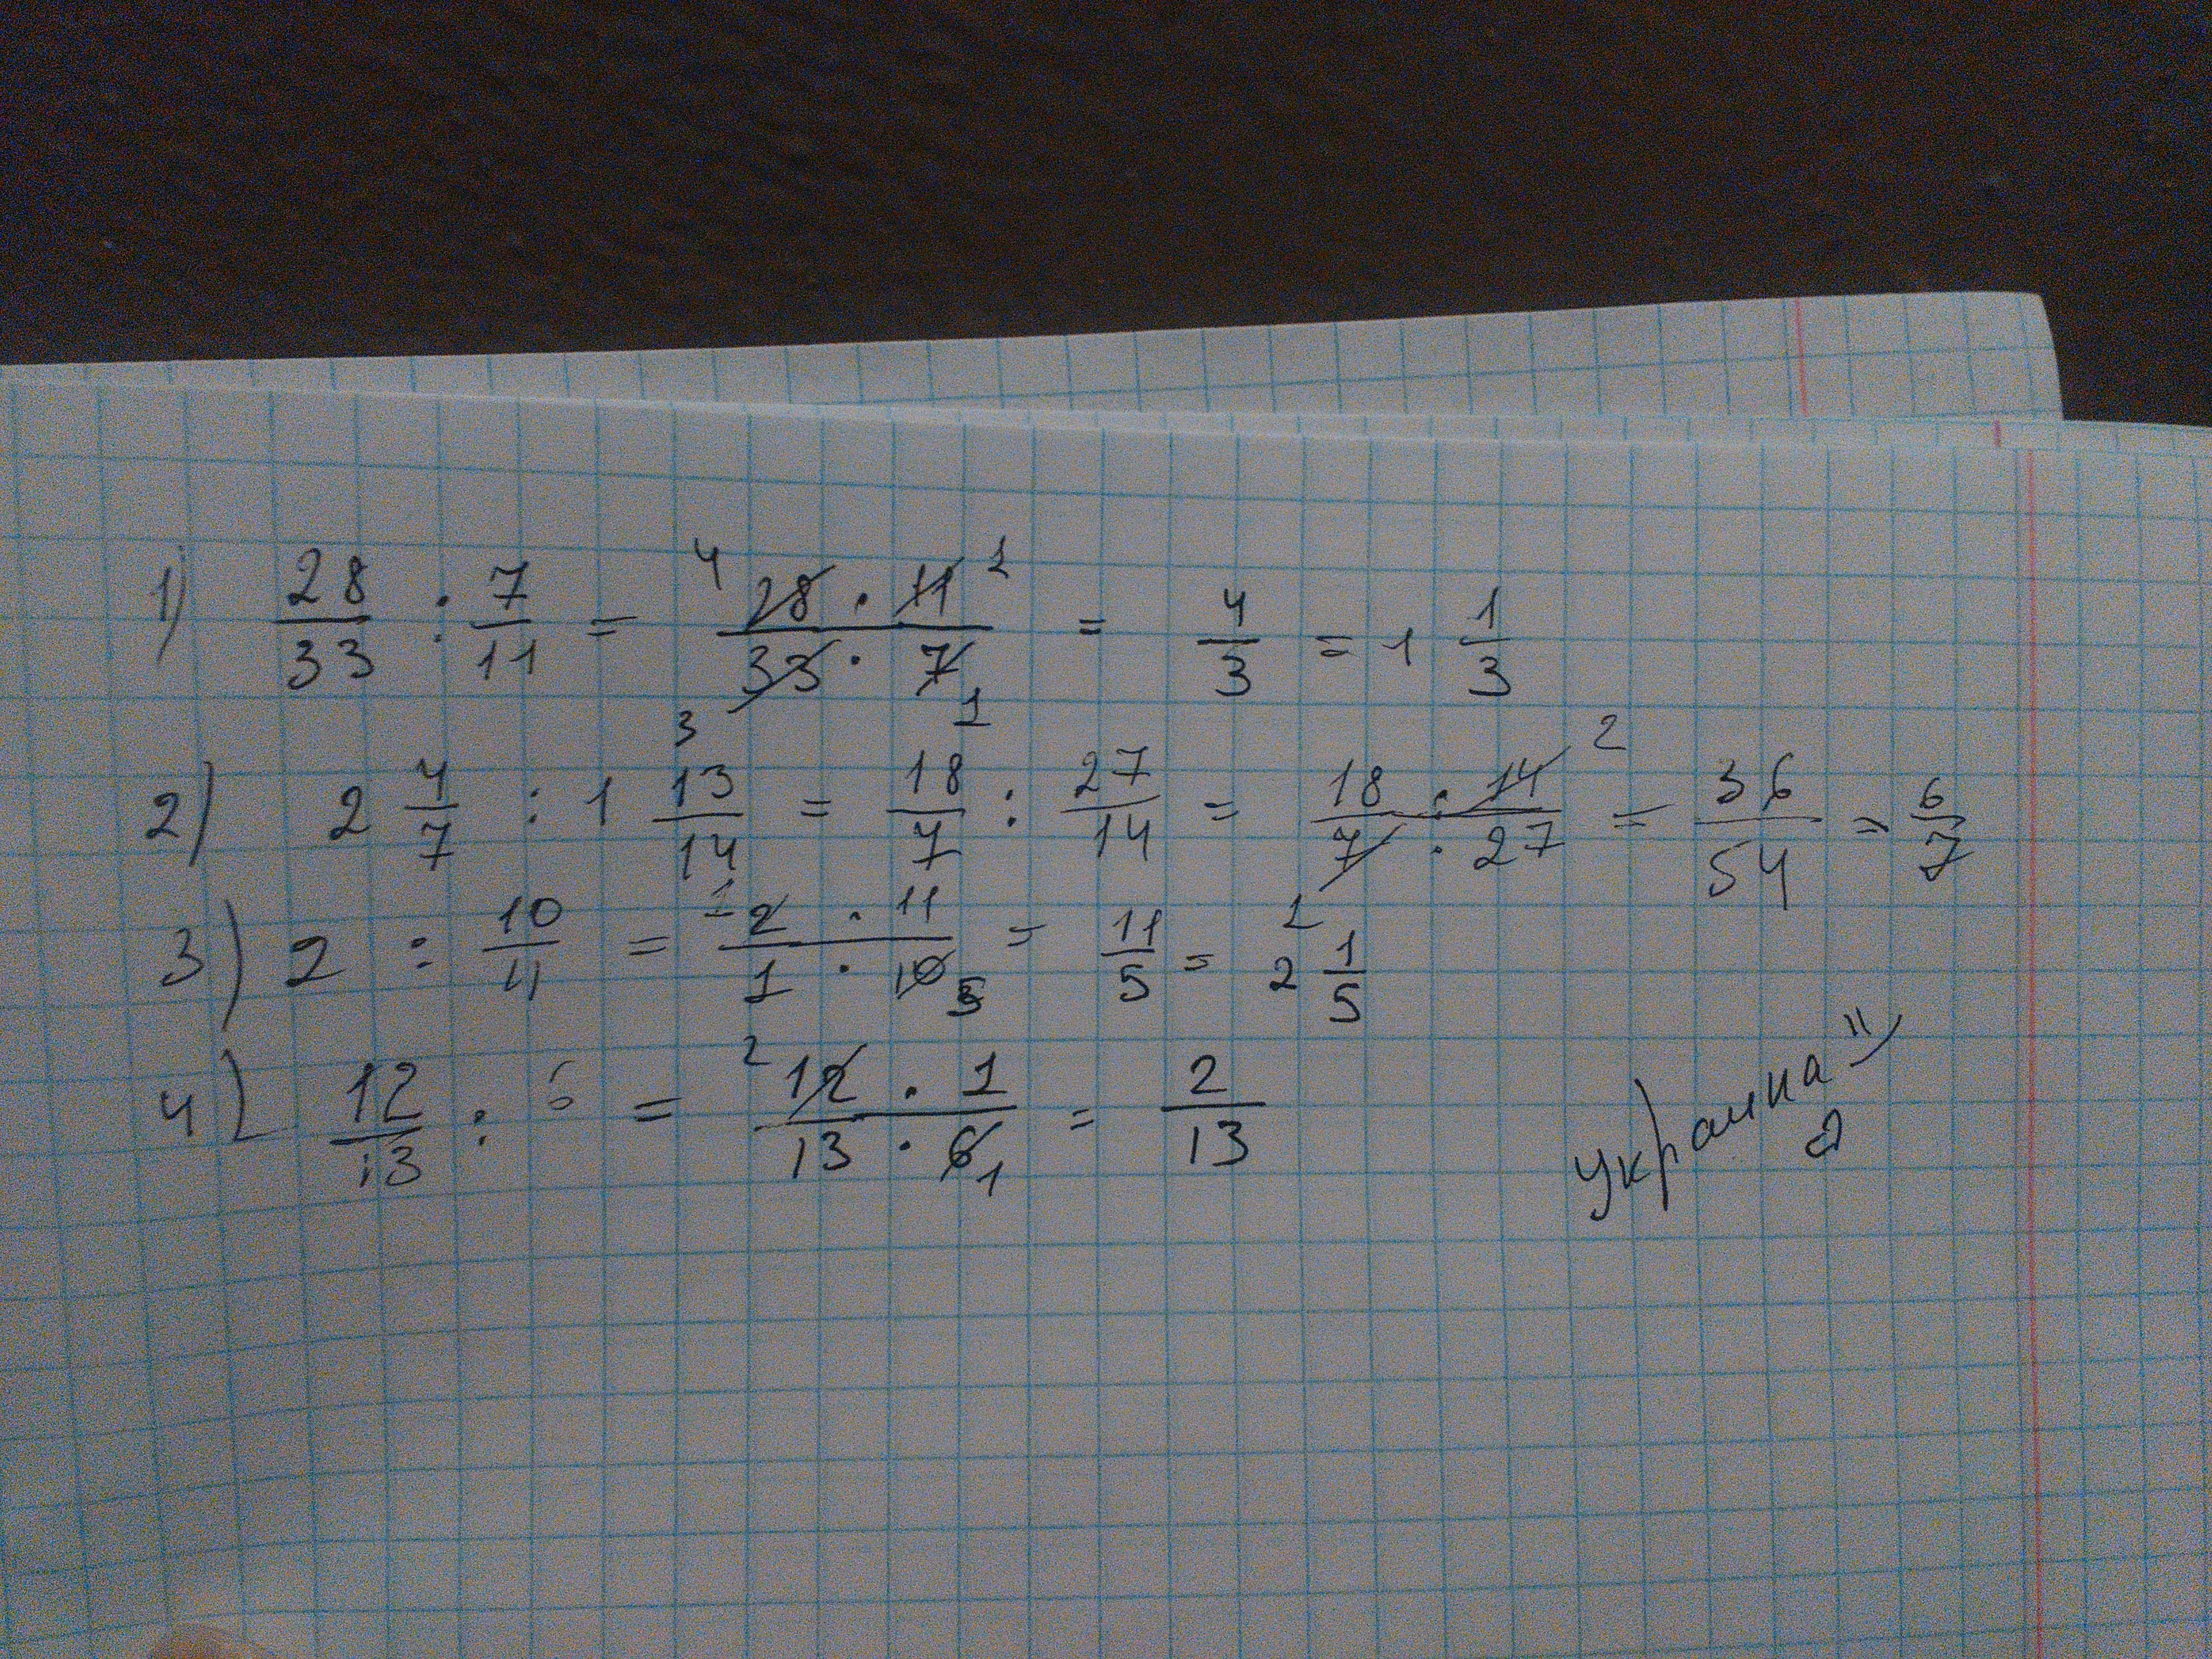 1) 28/33 : 7/11 = 4 28 · 11 1 / 33 · 7 3 1 = 4/3 = 1 1/3
2) 2 4/7 : 1 13/14 = 18/7 : 27/14 = 18 · 14 2 / 7 · 27 1 = 36/54 = 6/7
3) 2 : 10/11 = 1 2 · 11 / 1 · 10 5 = 11/5 = 2 1/5
4) 12/13 : 6 = 2 12 · 1 / 13 · 6 1 = 2/13
украинка"